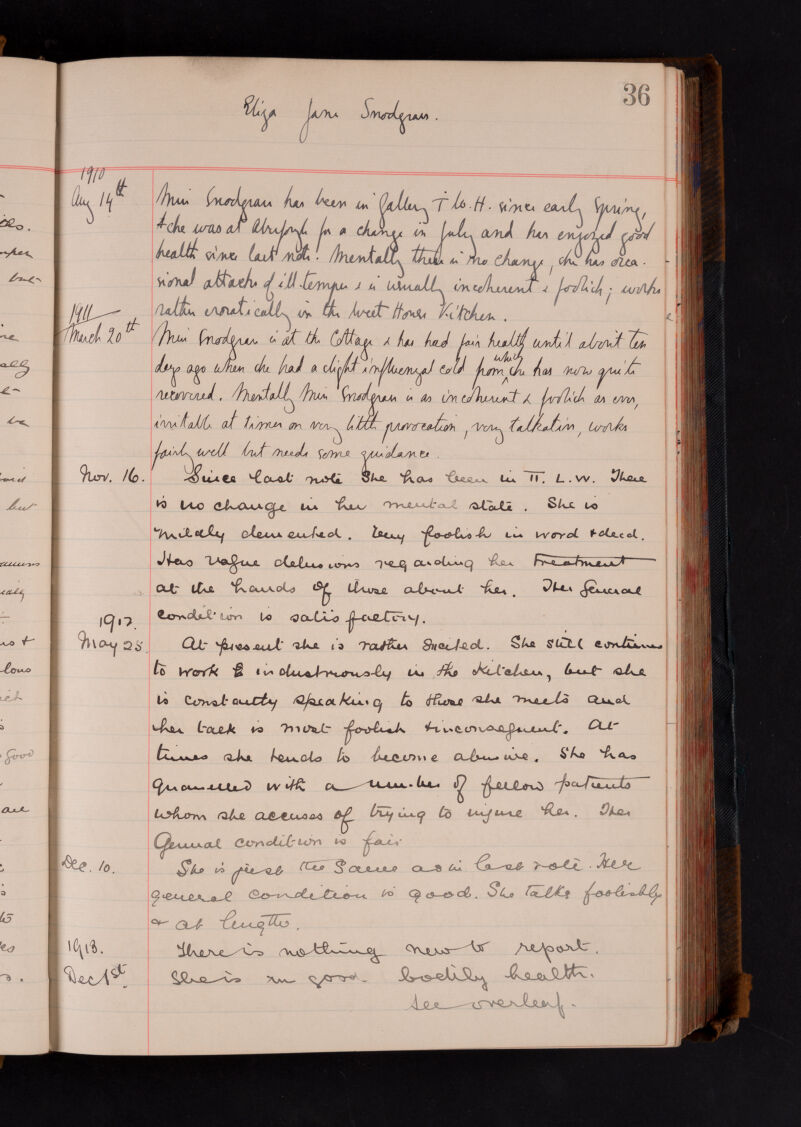 36
Eliza Jane Snodgrass.
1910
Aug 14th Miss Snodgrass has been in Gallery I W.H. since early Spring,
& she was at for a change in July and has enjoyed good
health since last note. Mentally there is no change, she has occa-
sional attacks of ill-temper & is usually incoherent & foolish; works
rather erratically in the West House Kitchen.
1911
March 20th Miss Snodgrass is at the Cottage & has had fair health until about ten
days ago when she had a slight influenzal cold from which she has now quite
recovered. Mentally Miss Snodgrass is as incoherent & foolish as ever,
irritable at times on very little provocation, very talkative, works
fairly well but needs some guidance.
Nov. 16. Since last note she has been in II. L.W. There
is no change in her mental state. She is
mildly demented. Very foolish in word & deed.
Has vague delusions regarding her treatment
at the hands of those about her. Her general
condition is satisfactory.
1912.
May 25. At present she is rather excited. She still continues
to work industriously in the kitchen, but she
is constantly speaking to those she meets and
her talk is most foolish & inconsequent. At
times she tends to become abusive. She has
quarrelled with a number of fellow patients
whom she accuses of trying to injure her. Her
General condition is fair.
Dec. 10. She is just the same as in last note. Her
general condition is good. She talks foolishly
& at length.
1913. There is nothing new to report.
Dec 1st. She is in good bodily health.
See overleaf.